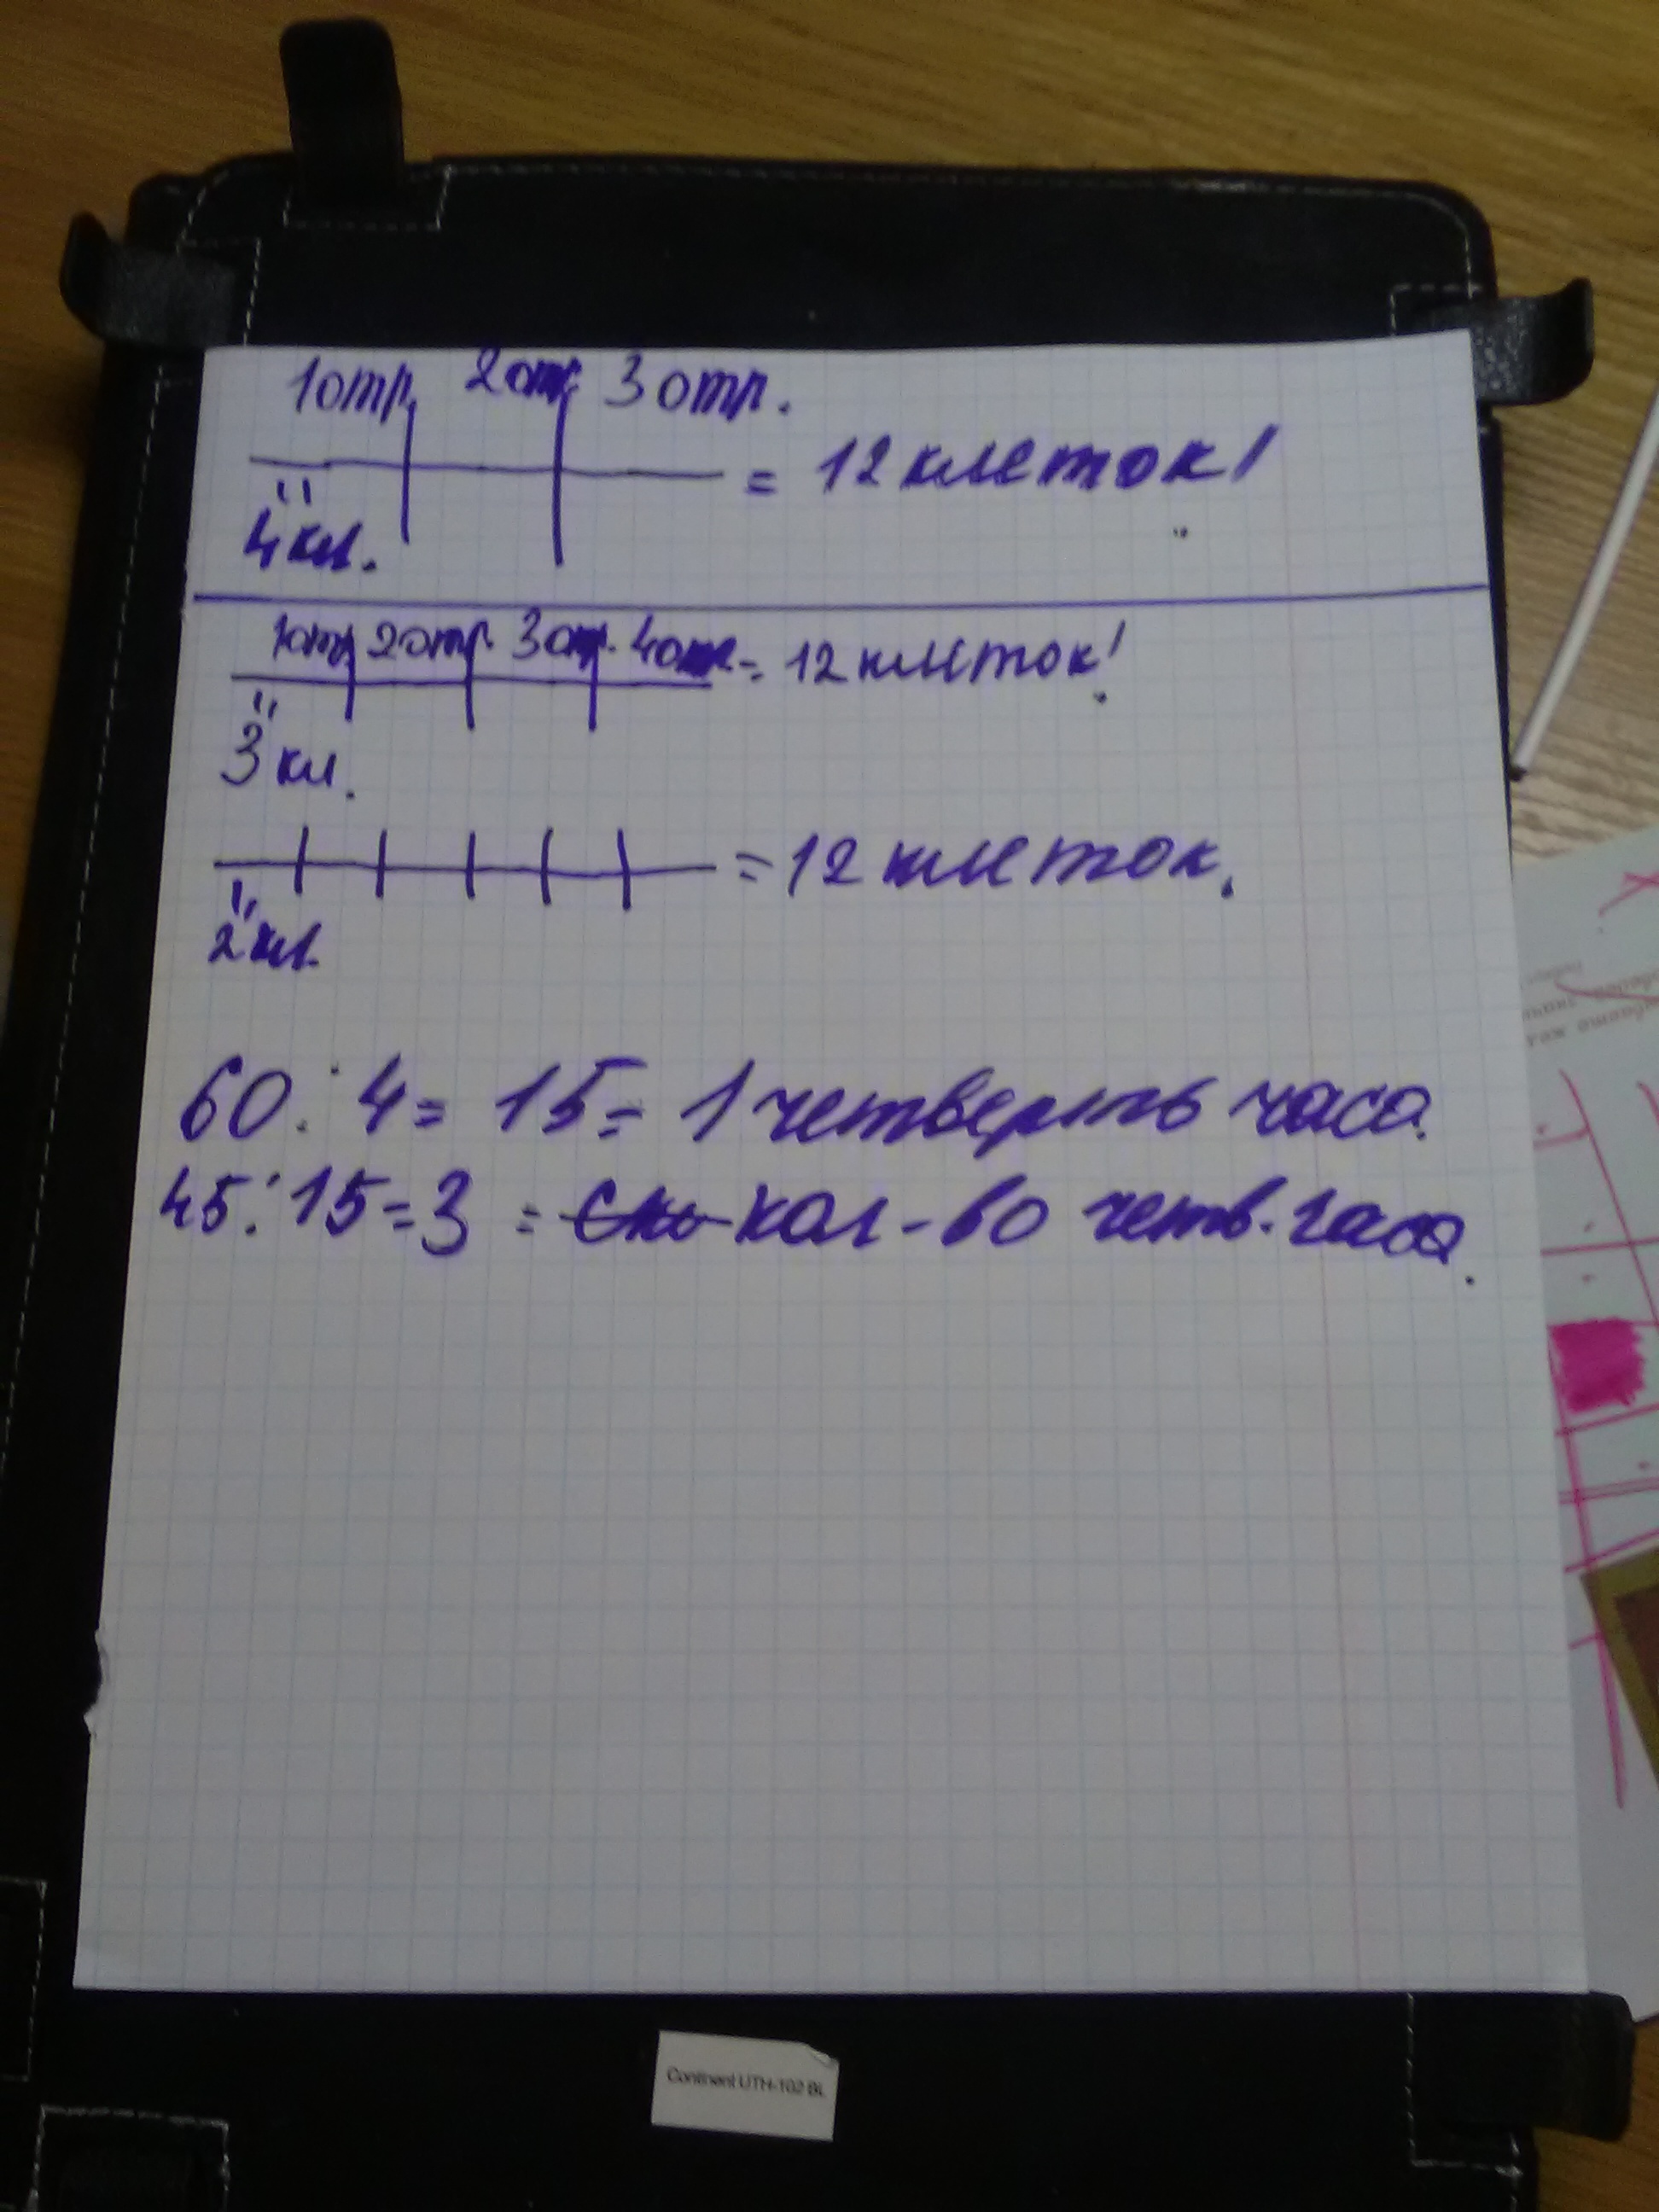 1 отр. 2 отр. 3 отр.
= 12 клеток!
4 кл.
1 отр. 2 отр. 3 отр. 4 отр. = 12 клеток!
3 кл.
= 12 клеток.
2 кл.
60 : 4 = 15 = 1 четверть часа.
45 : 15 = 3 = кол-во четв. часа.
Continent UTH-102 BL